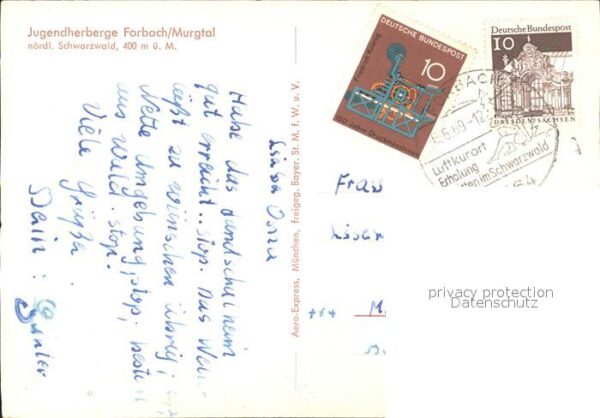 Jugendherberge Forbach/Murgtal
nördl. Schwarzwald, 400 m ü. M.
Liebe
Habe das Landschulheim
gut erreicht.. stop. Das
läßt zu wünschen übrig;
Nette Umgebung, stop;
aus Wald. stop.
Viele Grüße
Dein: Günter
Aero-Express, München, freigeg. Bayer. St. M. f. W. u. V.
DEUTSCHE BUNDESPOST
10
Friedrich Koenig
150 Jahre Druckmaschinen
Deutsche Bundespost
10
DRESDEN/SACHSEN
FORBACH
6.69-12
Luftkurort
Erholung
im Schwarzwald
Frau
M
privacy protection
Datenschutz